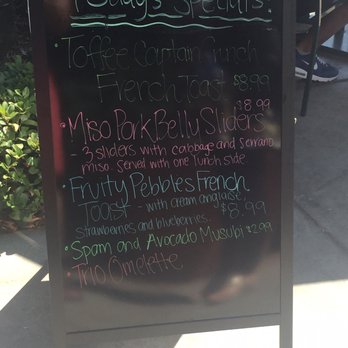 Today's Specials!
Toffee Captain Crunch
French Toast $8.99
$8.99
• Miso Pork Belly Sliders
- 3 sliders with cabbage and serrano
miso. served with one lunch side
• Fruity Pebbles French
Toast - with cream anglaise
strawberries and blueberries. $8.99
• Spam and Avocado Musubi $2.99
• Trio Omelette